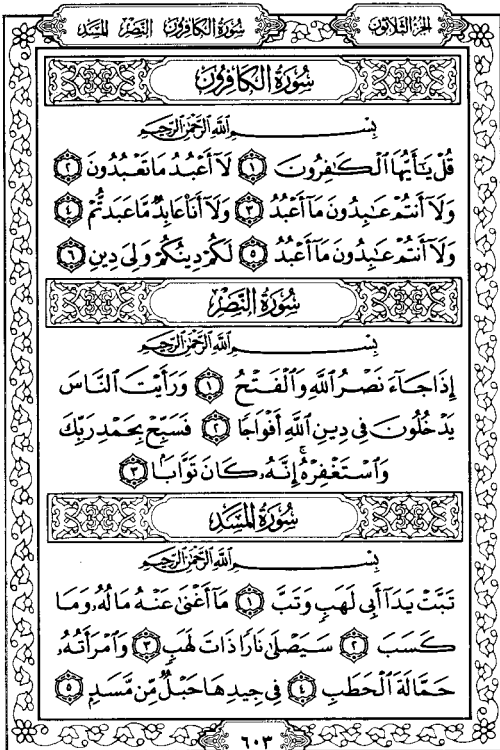 الجزء الثلاثون
سورة الكافرون النصر المسد
سُورَةُ الكَافِرُونَ
بِسْمِ اللَّهِ الرَّحْمَٰنِ الرَّحِيمِ
قُلْ يَٰٓأَيُّهَا ٱلْكَٰفِرُونَ ١ لَآ أَعْبُدُ مَا تَعْبُدُونَ ٢
وَلَآ أَنتُمْ عَٰبِدُونَ مَآ أَعْبُدُ ٣ وَلَآ أَنَا۠ عَابِدٌ مَّا عَبَدتُّمْ ٤
وَلَآ أَنتُمْ عَٰبِدُونَ مَآ أَعْبُدُ ٥ لَكُمْ دِينُكُمْ وَلِىَ دِينِ ٦
سُورَةُ النَّصْرِ
بِسْمِ اللَّهِ الرَّحْمَٰنِ الرَّحِيمِ
إِذَا جَآءَ نَصْرُ ٱللَّهِ وَٱلْفَتْحُ ١ وَرَأَيْتَ ٱلنَّاسَ
يَدْخُلُونَ فِى دِينِ ٱللَّهِ أَفْوَاجًا ٢ فَسَبِّحْ بِحَمْدِ رَبِّكَ
وَٱسْتَغْفِرْهُ ۚ إِنَّهُۥ كَانَ تَوَّابًۢا ٣
سُورَةُ المَسَدِ
بِسْمِ اللَّهِ الرَّحْمَٰنِ الرَّحِيمِ
تَبَّتْ يَدَآ أَبِى لَهَبٍ وَتَبَّ ١ مَآ أَغْنَىٰ عَنْهُ مَالُهُۥ وَمَا
كَسَبَ ٢ سَيَصْلَىٰ نَارًا ذَاتَ لَهَبٍ ٣ وَٱمْرَأَتُهُۥ
حَمَّالَةَ ٱلْحَطَبِ ٤ فِى جِيدِهَا حَبْلٌ مِّن مَّسَدٍۭ ٥
٦٠٣